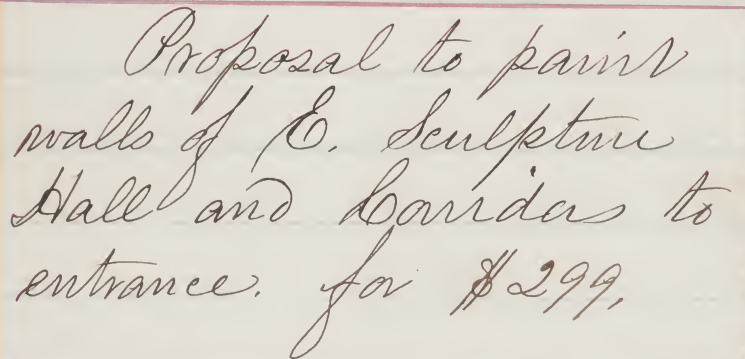 Proposal to paint
walls of E. Sculpture
Hall and Corridors to
entrance. for $299,